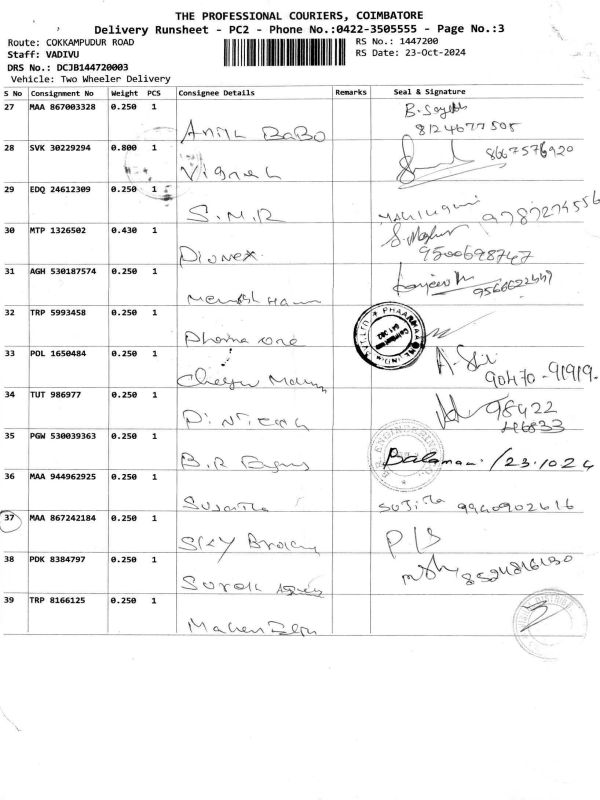 THE PROFESSIONAL COURIERS, COIMBATORE
Delivery Runsheet - PC2 - Phone No.:0422-3505555 - Page No.:3
Route: COKKAMPUDUR ROAD
RS No.: 1447200
Staff: VADIVU
RS Date: 23-Oct-2024
DRS No.: DCJB144720003
Vehicle: Two Wheeler Delivery
S No Consignment No Weight PCS Consignee Details Remarks Seal & Signature
27 MAA 867003328 0.250 1 Anith BaBo
8124677505
28 SVK 30229294 0.800 1 Vignesh 8667576920
29 EDQ 24612309 0.250 1 S.M.R 9787274556
30 MTP 1326502 0.430 1 Dionex
9500698747
31 AGH 530187574 0.250 1
9566622449
32 TRP 5993458 0.250 1 Pharma one
33 POL 1650484 0.250 1 A.
90470-91919
34 TUT 986977 0.250 1 98422
46833
35 PGW 530039363 0.250 1 B.R Balamani /23.1024
36 MAA 944962925 0.250 1 Sujatha SUJITA 9940902616
37 MAA 867242184 0.250 1 SKY P/S
38 PDK 8384797 0.250 1 8524816130
39 TRP 8166125 0.250 1 Mahen